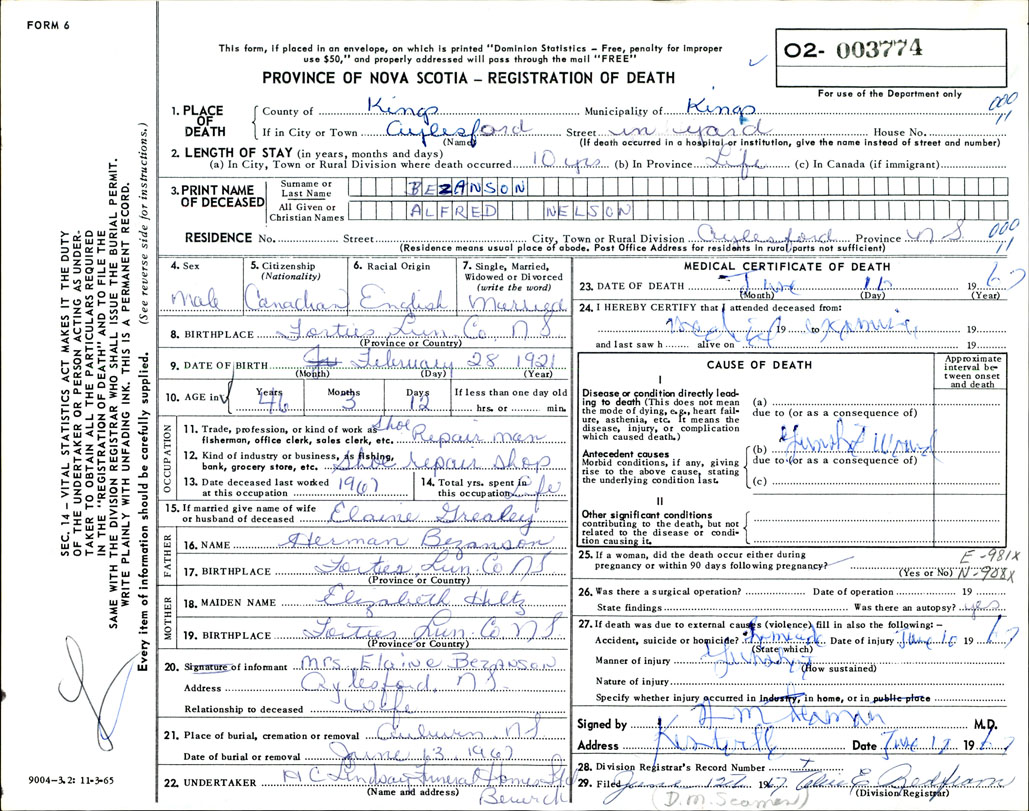 FORM 6
This form, if placed in an envelope, on which is printed "Dominion Statistics – Free, penalty for improper
use $50," and properly addressed will pass through the mail "FREE"
O2- 003774
For use of the Department only
PROVINCE OF NOVA SCOTIA – REGISTRATION OF DEATH
000
11
1. PLACE OF DEATH County of Kings Municipality of Kings
If in City or Town Aylesford Street in yard House No.
(Name) (If death occurred in a hospital or institution, give the name instead of street and number)
2. LENGTH OF STAY (in years, months and days)
(a) In City, Town or Rural Division where death occurred 10 yrs (b) In Province Life (c) In Canada (if immigrant)
3. PRINT NAME OF DECEASED Surname or Last Name BEZANSON
All Given or Christian Names ALFRED NELSON
RESIDENCE No. Street City, Town or Rural Division Aylesford Province NS
(Residence means usual place of abode. Post Office Address for residents in rural parts not sufficient)
000
11
4. Sex Male
5. Citizenship (Nationality) Canadian
6. Racial Origin English
7. Single, Married, Widowed or Divorced (write the word) Married
8. BIRTHPLACE Forties Lun. Co NS
(Province or Country)
9. DATE OF BIRTH February 28 1921
(Month) (Day) (Year)
10. AGE in Years 46 Months 3 Days 12 If less than one day old
hrs. or min.
OCCUPATION
11. Trade, profession, or kind of work as fisherman, office clerk, sales clerk, etc. Shoe Repair man
12. Kind of industry or business, as fishing, bank, grocery store, etc. Shoe repair shop
13. Date deceased last worked at this occupation 1967
14. Total yrs. spent in this occupation Life
15. If married give name of wife or husband of deceased Elaine Grealey
FATHER
16. NAME Herman Bezanson
17. BIRTHPLACE Forties Lun. Co NS
(Province or Country)
MOTHER
18. MAIDEN NAME Elizabeth Hiltz
19. BIRTHPLACE Forties Lun. Co NS
(Province or Country)
20. Signature of informant MRS. Elaine Bezanson
Address Aylesford, NS.
Relationship to deceased Wife
21. Place of burial, cremation or removal Auburn NS
Date of burial or removal June 13 1967
22. UNDERTAKER H C Lindsay Funeral Homes Ltd
(Name and address) Berwick
MEDICAL CERTIFICATE OF DEATH
23. DATE OF DEATH June 10 1967
(Month) (Day) (Year)
24. I HEREBY CERTIFY that I attended deceased from:
19 to 19
and last saw h alive on 19
CAUSE OF DEATH
Approximate interval between onset and death
I
Disease or condition directly leading to death (This does not mean the mode of dying, e.g., heart failure, asthenia, etc. It means the disease, injury, or complication which caused death.)
(a)
due to (or as a consequence of)
Antecedent causes
Morbid conditions, if any, giving rise to the above cause, stating the underlying condition last.
(b) Gunshot Wound
due to (or as a consequence of)
(c)
II
Other significant conditions
contributing to the death, but not related to the disease or condition causing it.
25. If a woman, did the death occur either during
pregnancy or within 90 days following pregnancy?
(Yes or No)
E-981X
N-908X
26. Was there a surgical operation? Date of operation 19
State findings Was there an autopsy? yes
27. If death was due to external causes (violence) fill in also the following:–
Accident, suicide or homicide? Homicide Date of injury June 10 1967
(State which)
Manner of injury Gunshot
(How sustained)
Nature of injury
Specify whether injury occurred in industry, in home, or in public place
Signed by H M M.D.
Address Kentville Date June 19 1967
28. Division Registrar's Record Number
29. Filed June 12th 1967
(Division Registrar)
(D. M. Seaman)
SEC. 14 – VITAL STATISTICS ACT MAKES IT THE DUTY
OF THE UNDERTAKER OR PERSON ACTING AS UNDER-
TAKER TO OBTAIN ALL THE PARTICULARS REQUIRED
IN THE "REGISTRATION OF DEATH" AND TO FILE THE
SAME WITH THE DIVISION REGISTRAR WHO SHALL ISSUE THE BURIAL PERMIT.
WRITE PLAINLY WITH UNFADING INK. THIS IS A PERMANENT RECORD.
Every item of information should be carefully supplied. (See reverse side for instructions.)
9004–3.2: 11-3-65